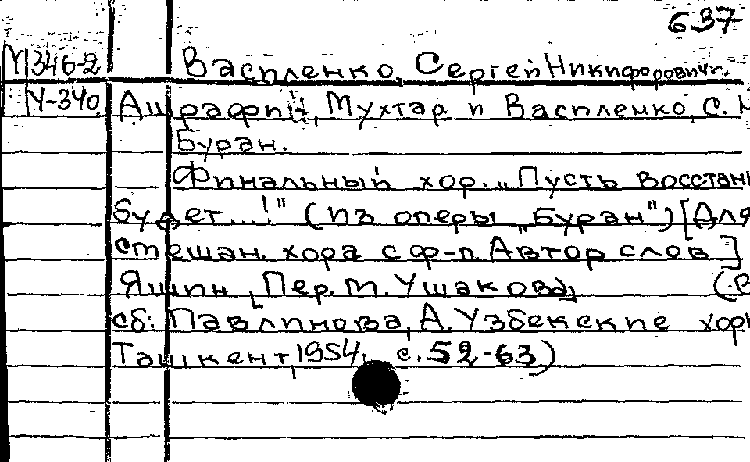 637
М 346-2 Василенко, Сергей Никифорович.
У-340 Ашрафий, Мухтар и Василенко, С. Н
Буран.
Финальный хор. „Пусть восстан
будет...!" (из оперы „Буран") [Для
смешан. хора с ф-п. Автор слов]
Яшин [Пер. М. Ушакова] (В
сб: Павлинова, А. Узбекские хор
Ташкент, 1954, с. 52-63)